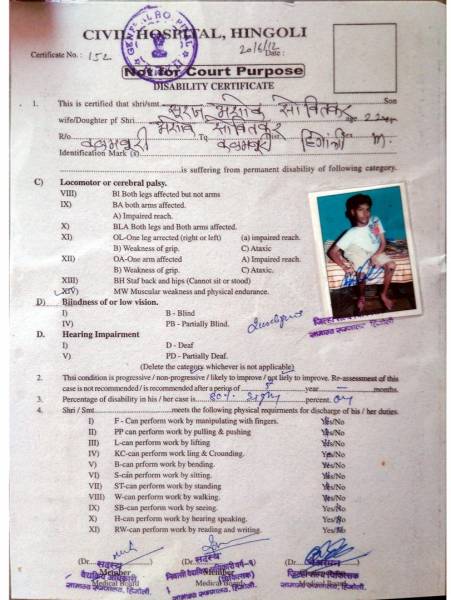 CIVIL HOSPITAL, HINGOLI
GENERAL HOSPITAL
Certificate No. : 152 20/6/12 Date :
Not for Court Purpose
DISABILITY CERTIFICATE
1. This is certified that shri/smt. सुरज अशोक सोवितकर Son
wife/Doughter pf Shri अशोक सोवितकर age 22
R/o कळमनुरी Tq कळमनुरी हिंगोली Sex M.
Identification Mark (s)
is suffering from permanent disability of following category.
C) Locomotor or cerebral palsy.
VIII) Bl Both legs affected but not arms
IX) BA both arms affected.
A) Impaired reach.
X) BLA Both legs and Both arms affected.
XI) OL-One leg arrected (right or left) (a) impaired reach.
B) Weakness of grip. (C) Ataxic
XII) OA-One arm affected A) Impaired reach.
B) Weakness of grip. C) Ataxic.
XIII) BH Staf back and hips (Cannot sit or stood)
XIV) MW Muscular weakness and physical endurance.
D) Blindness of or low vision.
I) B - Blind
IV) PB - Partially Blind.
D. Hearing Impairment
I) D - Deaf
V) PD - Partially Deaf.
(Delete the category whichever is not applicable)
2. This condition is progressive / non-progressive / likely to improve / not liely to improve. Re-assessment of this
case is not recommended / is recommended after a perig of 5 year – months.
3. Percentage of disability in his / her case is. 80% percent.
4. Shri / Smt. meets the following physical requirments for discharge of his / her duties.
I) F - Can perform work by manipulating with fingers. Yes/No
II) PP can perform work by pulling & pushing Yes/No
III) L-can perform work by lifting Yes/No
IV) KC-can perform work ling & Crounding. Yes/No
V) B-can prform work by bending. Yes/No
VI) S-can perform work by sitting. Yes/No
VII) ST-can perform work by standing Yes/No
VIII) W-can perform work by walking. Yes/No
IX) SB-can perform work by seeing. Yes/No
X) H-can perform work by hearing speaking. Yes/No
XI) RW-can perform work by reading and writing. Yes/No
(Dr. सदस्य ) (Dr. सदस्य ) (Dr. अध्यक्ष )
Member Member
वैद्यकिय अधिकारी निवासी वैद्यकिय अधिकारी वर्ग-१ जिल्हा शल्य चिकित्सक
Medical Board Medical Board
सामान्य रुग्णालय, हिंगोली. सामान्य रुग्णालय, हिंगोली. सामान्य रुग्णालय, हिंगोली.